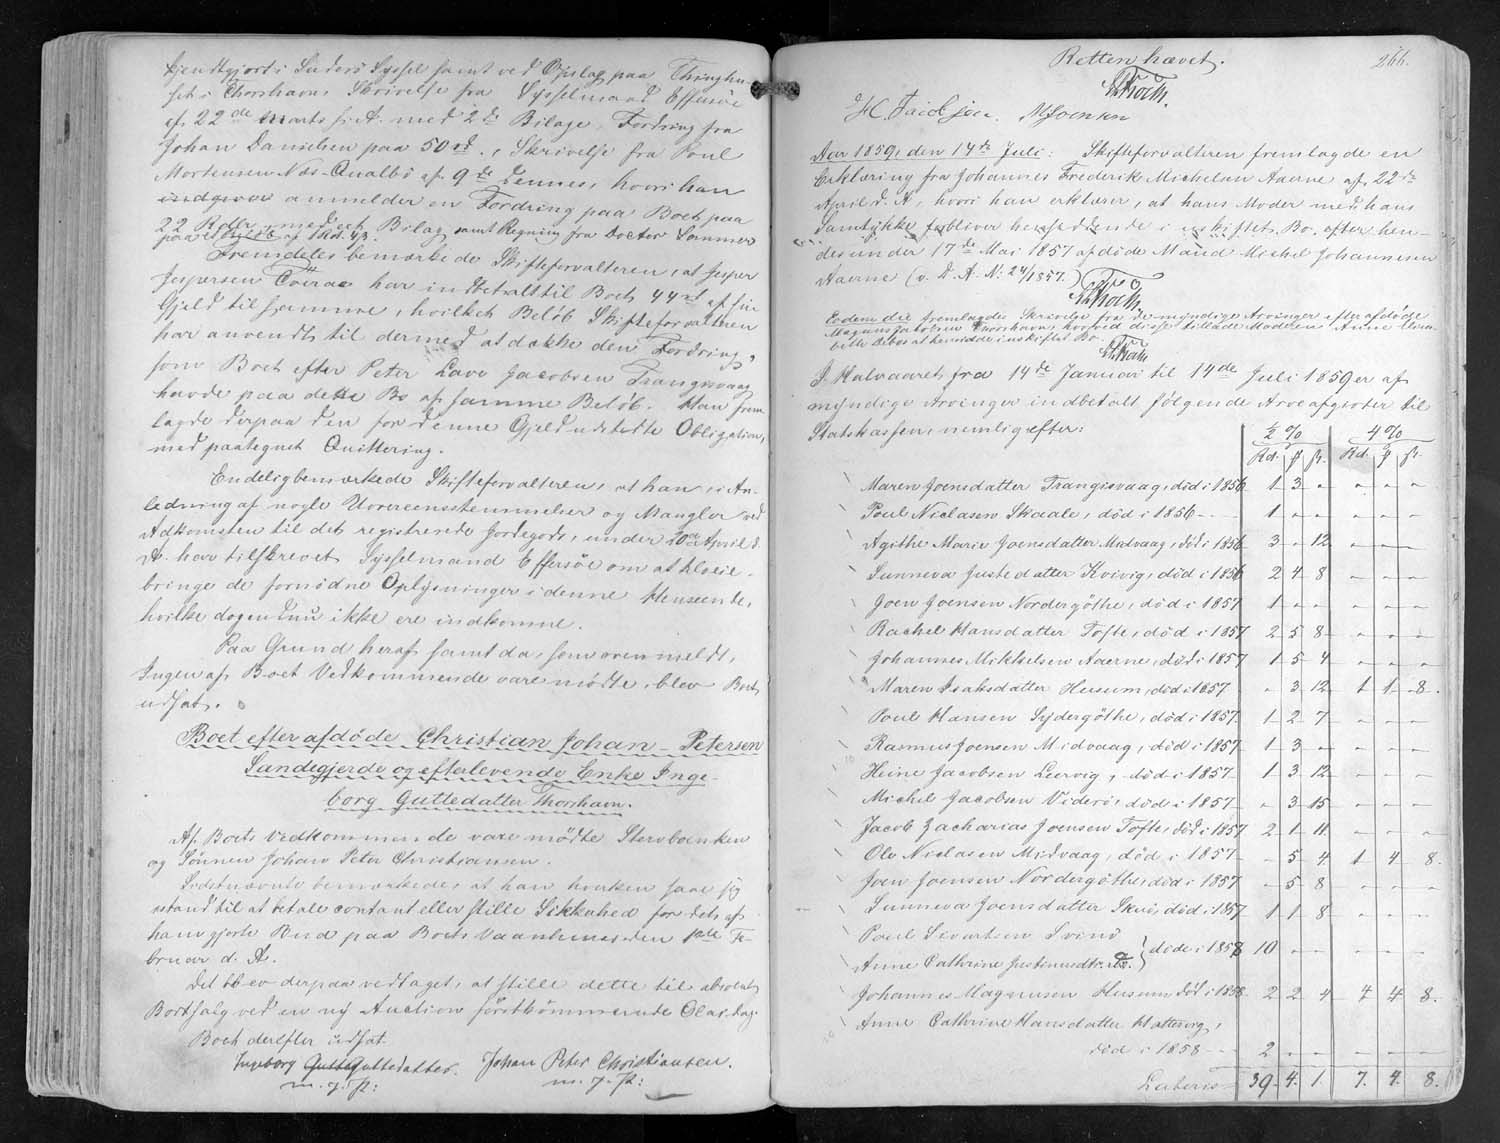 kjendtgjort i Suderö Syssel samt ved Opslag paa Thinghu-
set i Thorshavn, Skrivelse fra Sysselmand Effersöe
af 22de Marts d. A. med 2de Bilage, Fordring fra
Johan Danielsen paa 50 rd., Skrivelse fra Poul
Mortensen Næs-Qualbö af 9de dennes, hvori han
indgiver anmelder en Fordring paa Boet paa
22 Rdlr, med et Bilag, samt Regning fra Doctor Sommer
Fremdeles bemærkede Skifteforvalteren, at Jesper
Jespersen Tveraa har indbetalt til Boet 44 rd af sin
Gjeld til samme, hvilket Beløb Skifteforvalteren
har anvendt til dermed at dække den Fordring,
som Boet efter Peter Lave Jacobsen Trangisvaag
havde paa dette Bo af samme Beløb. Han frem-
lagde derpaa den for denne Gjeld udstedte Obligation,
med paategnet Quittering.
Endelig bemærkede Skifteforvalteren, at han, i An-
ledning af nogle Uovereensstemmelser og Mangler ved
Adkomsten til det registrerede Jordegods, under 20de April d.
A. har tilskrevet Sysselmand Effersöe om at tilveie-
bringe de fornødne Oplysninger i denne Henseende,
hvilke dog endnu ikke ere indkomne.
Paa Grund heraf samt da, som ovenmeldt,
Ingen af Boet Vedkommende vare mødte, blev Boet
udsat.
Boet efter afdöde Christian Johan Petersen
Sandegjerde og efterlevende Enke Inge-
borg Guttedatter Thorshavn.
Af Boets Vedkommende vare mødte Stervboenken
og Sønnen Johan Peter Christiansen.
Sidstnævnte bemærkede, at han hverken saae sig
istand til at betale contant eller stille Sikkerhed for det af
ham gjorte Bud paa Boets Vaanhuus den 1ste Fe-
bruar d. A.
Det blev derpaa vedtaget, at stille dette til absolut
Bortsalg ved en ny Auction førstkommende Olai-dag.
Boet derefter udsat.
Ingeborg Guttedatter. Johan Peter Christiansen.
m. f. P: m. f. P:
266.
Retten hævet.
H. Jacobsen. M Joensen
Aar 1859, den 14de Juli: Skifteforvalteren fremlagde en
Erklæring fra Johannes Frederik Michelsen Aaerne af 22de
April d. A., hvori han erklærer, at hans Moder med hans
Samtykke forbliver hensiddende i uskiftet Bo efter hen-
des under 17de Mai 1857 afdøde Mand Michel Johannesen
Aaerne (v. D. A. N: 24/1857.)
Eodem die fremlagdes Skrivelse fra de myndige Arvinger efter afdöde
Magnus Jacobsen Thorshavn, hvorved disse tillade Moderen Anne Elisa-
beth Debes at hensidde i uskiftet Bo.
I Halvaaret fra 14de Januar til 14de Juli 1859 er af
myndige Arvinger indbetalt følgende Arveafgivter til
Statskassen, nemlig efter:
½ % 4 %
Rd. ꝑ ſk. Rd. ꝑ ſk.
Maren Joensdatter Trangisvaag, död i 1856 1 3 - - - -
Poul Niclasen Skaale, död i 1856 - 1 - - - - -
Agithe Marie Joensdatter Midvaag, död i 1856 3 - 12 - - -
Sunneva Justedatter Kvivig, död i 1856 2 4 8 - - -
Joen Joensen Nordergöthe, död i 1857 1 - - - - -
Rachel Hansdatter Tofte, död i 1857 2 5 8 - - -
Johannes Mikkelsen Aaerne, död i 1857 1 5 4 - - -
Maren Isaksdatter Husum, död i 1857 - 3 12 1 1 8.
Poul Hansen Sydergöthe, död i 1857 1 2 7 - - -
Rasmus Joensen Midvaag, död i 1857 1 3 - - - -
Heine Jacobsen Leervig, död i 1857 1 3 12 - - -
Michel Jacobsen Viderö, död i 1857 - 3 15 - - -
Jacob Zacharias Joensen Tofte, död i 1857 2 1 11 - - -
Ole Niclasen Midvaag, död i 1857 - 5 4 1 4 8.
Joen Joensen Nordergöthe, död i 1857 - 5 8 - - -
Sunneva Joensdatter Skuö, död i 1857 1 1 8 - - -
Poul Sivertsen Svinö
Anne Cathrine Justinusdtr. } döde i 1858 10 - - - - -
Johannes Magnusen Husum, död i 1858 2 2 4 4 4 8.
Anne Cathrine Hansdatter Hattervig,
död i 1858 2 - - - - -
Lateris 39. 4. 1. 7. 4. 8.